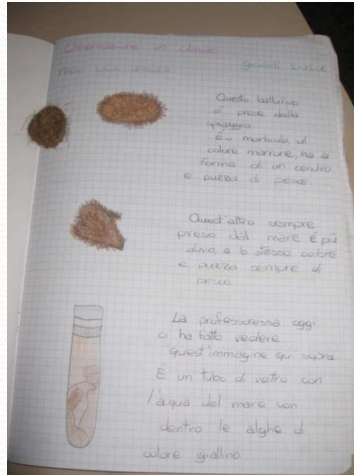 Osservazione in classe
Giovedì
Questo batuffolo
è preso dalla
spiaggia.
È morbido, di
colore marrone, ha la
forma di un
e puzza di pesce.
Quest'altro sempre
preso dal mare è più
duro, è lo stesso colore
e puzza sempre di
pesce.
La professoressa oggi
ci ha fatto vedere
quest'immagine qui sopra.
È un tubo di vetro con
l'acqua del mare, con
dentro le alghe di
colore giallino.